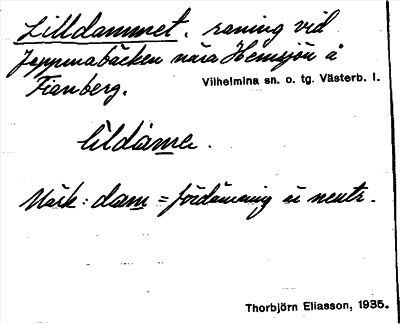 Lilldammet. raning vid
Joppmabäcken nära Hemsjön å
Vilhelmina sn. o. tg. Västerb. l.
Fianberg.
lìldáme.
Märk: dam = fördämning är neutr.
Thorbjörn Eliasson, 1935.